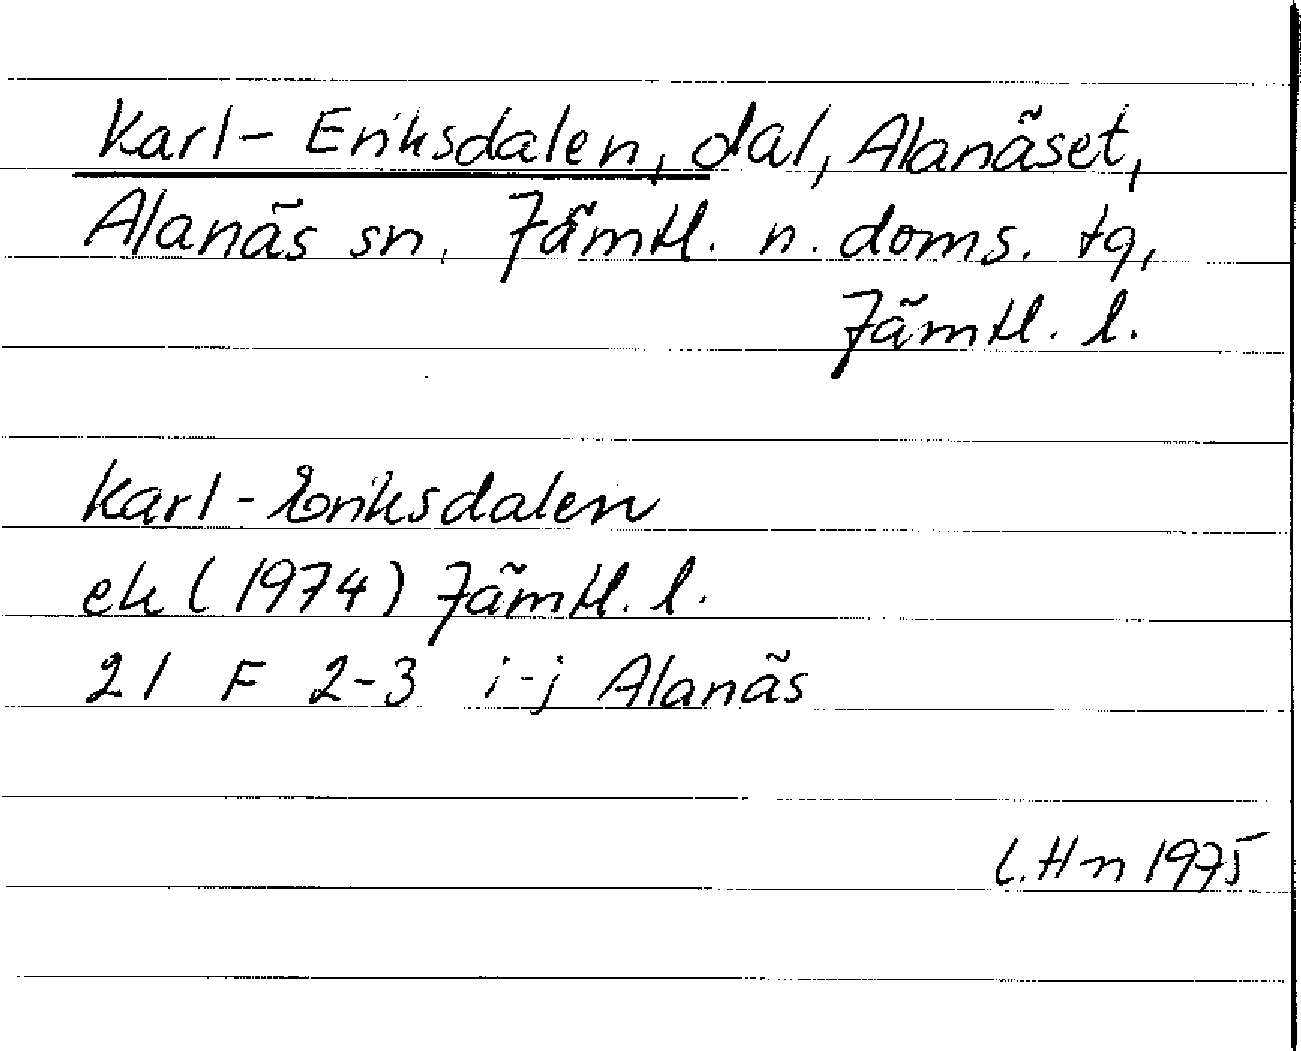 Karl-Eriksdalen, dal, Alanäset,
Alanäs sn, Jämtl. n. doms. tg,
Jämtl. l.
Karl-Eriksdalen
ek (1974) Jämtl. l.
21 F 2-3 i-j Alanäs
L.Hn 1975